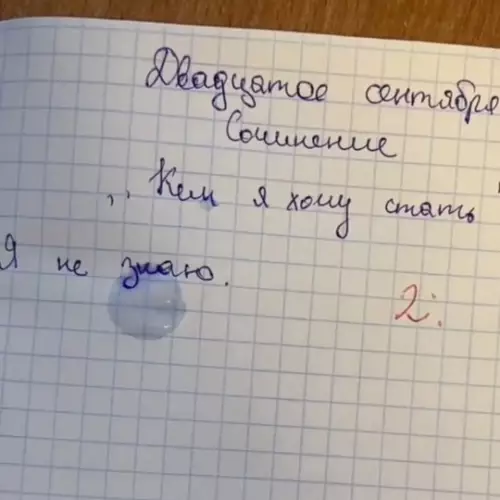 Двадцатое сентября
Сочинение
,, Кем я хочу стать "
Я не знаю.
2.